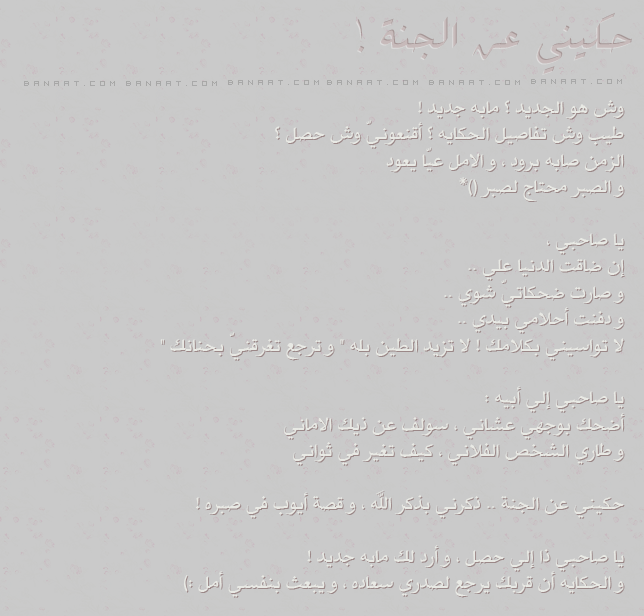 حكَيني عن الجنة !
BANAAT.COM BANAAT.COM BANAAT.COM BANAAT.COM BANAAT.COM BANAAT.COM
وش هو الجديد ؟ مابه جديد !
طيب وش تفاصيل الحكايه ؟ أقنعونيّ وش حصل ؟
الزمن صابه برود ، و الامل عيّا يعود
و الصبر محتاج لصبر ()*
يا صاحبي ،
إن ضاقت الدنيا علي ..
و صارت ضحكاتيّ شوي ..
و دفنت أحلامي بيدي ..
لا تواسيني بكلامك ! لا تزيد الطين بله " و ترجع تغرقنيّ بحنانك "
يا صاحبي إلي أبيه :
أضحك بوجهي عشاني ، سولف عن ذيك الاماني
و طاري الشخص الفلاني ، كيف تغير في ثواني
حكيني عن الجنة .. ذكرني بذكر الله ، و قصة أيوب في صبره !
يا صاحبي ذا إلي حصل ، و أرد لك مابه جديد !
و الحكايه أن قربك يرجع لصدري سعاده ، و يبعث بنفسي أمل :)